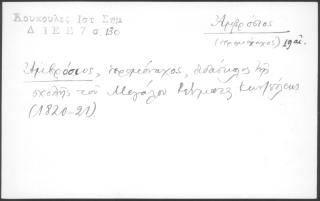 Κουκουλὲς Ἱστ Σημ
Δ Ι Ε Ε 7 σ. 130
Ἀμβρόσιος
(ἱερομόναχος) 19 αἰ.
Ἀμβρόσιος, ἱερομόναχος, διδάσκαλος τῆς
σχολῆς τοῦ Μεγάλου Ρεύματος Κων)πόλεως
(1820-21)